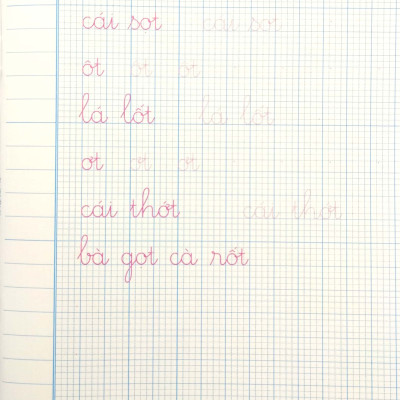 cái sot cái sot
ôt ôt ôt
lá lốt lá lốt
ơt ơt ơt
cái thớt cái thớt
bà got cà rốt